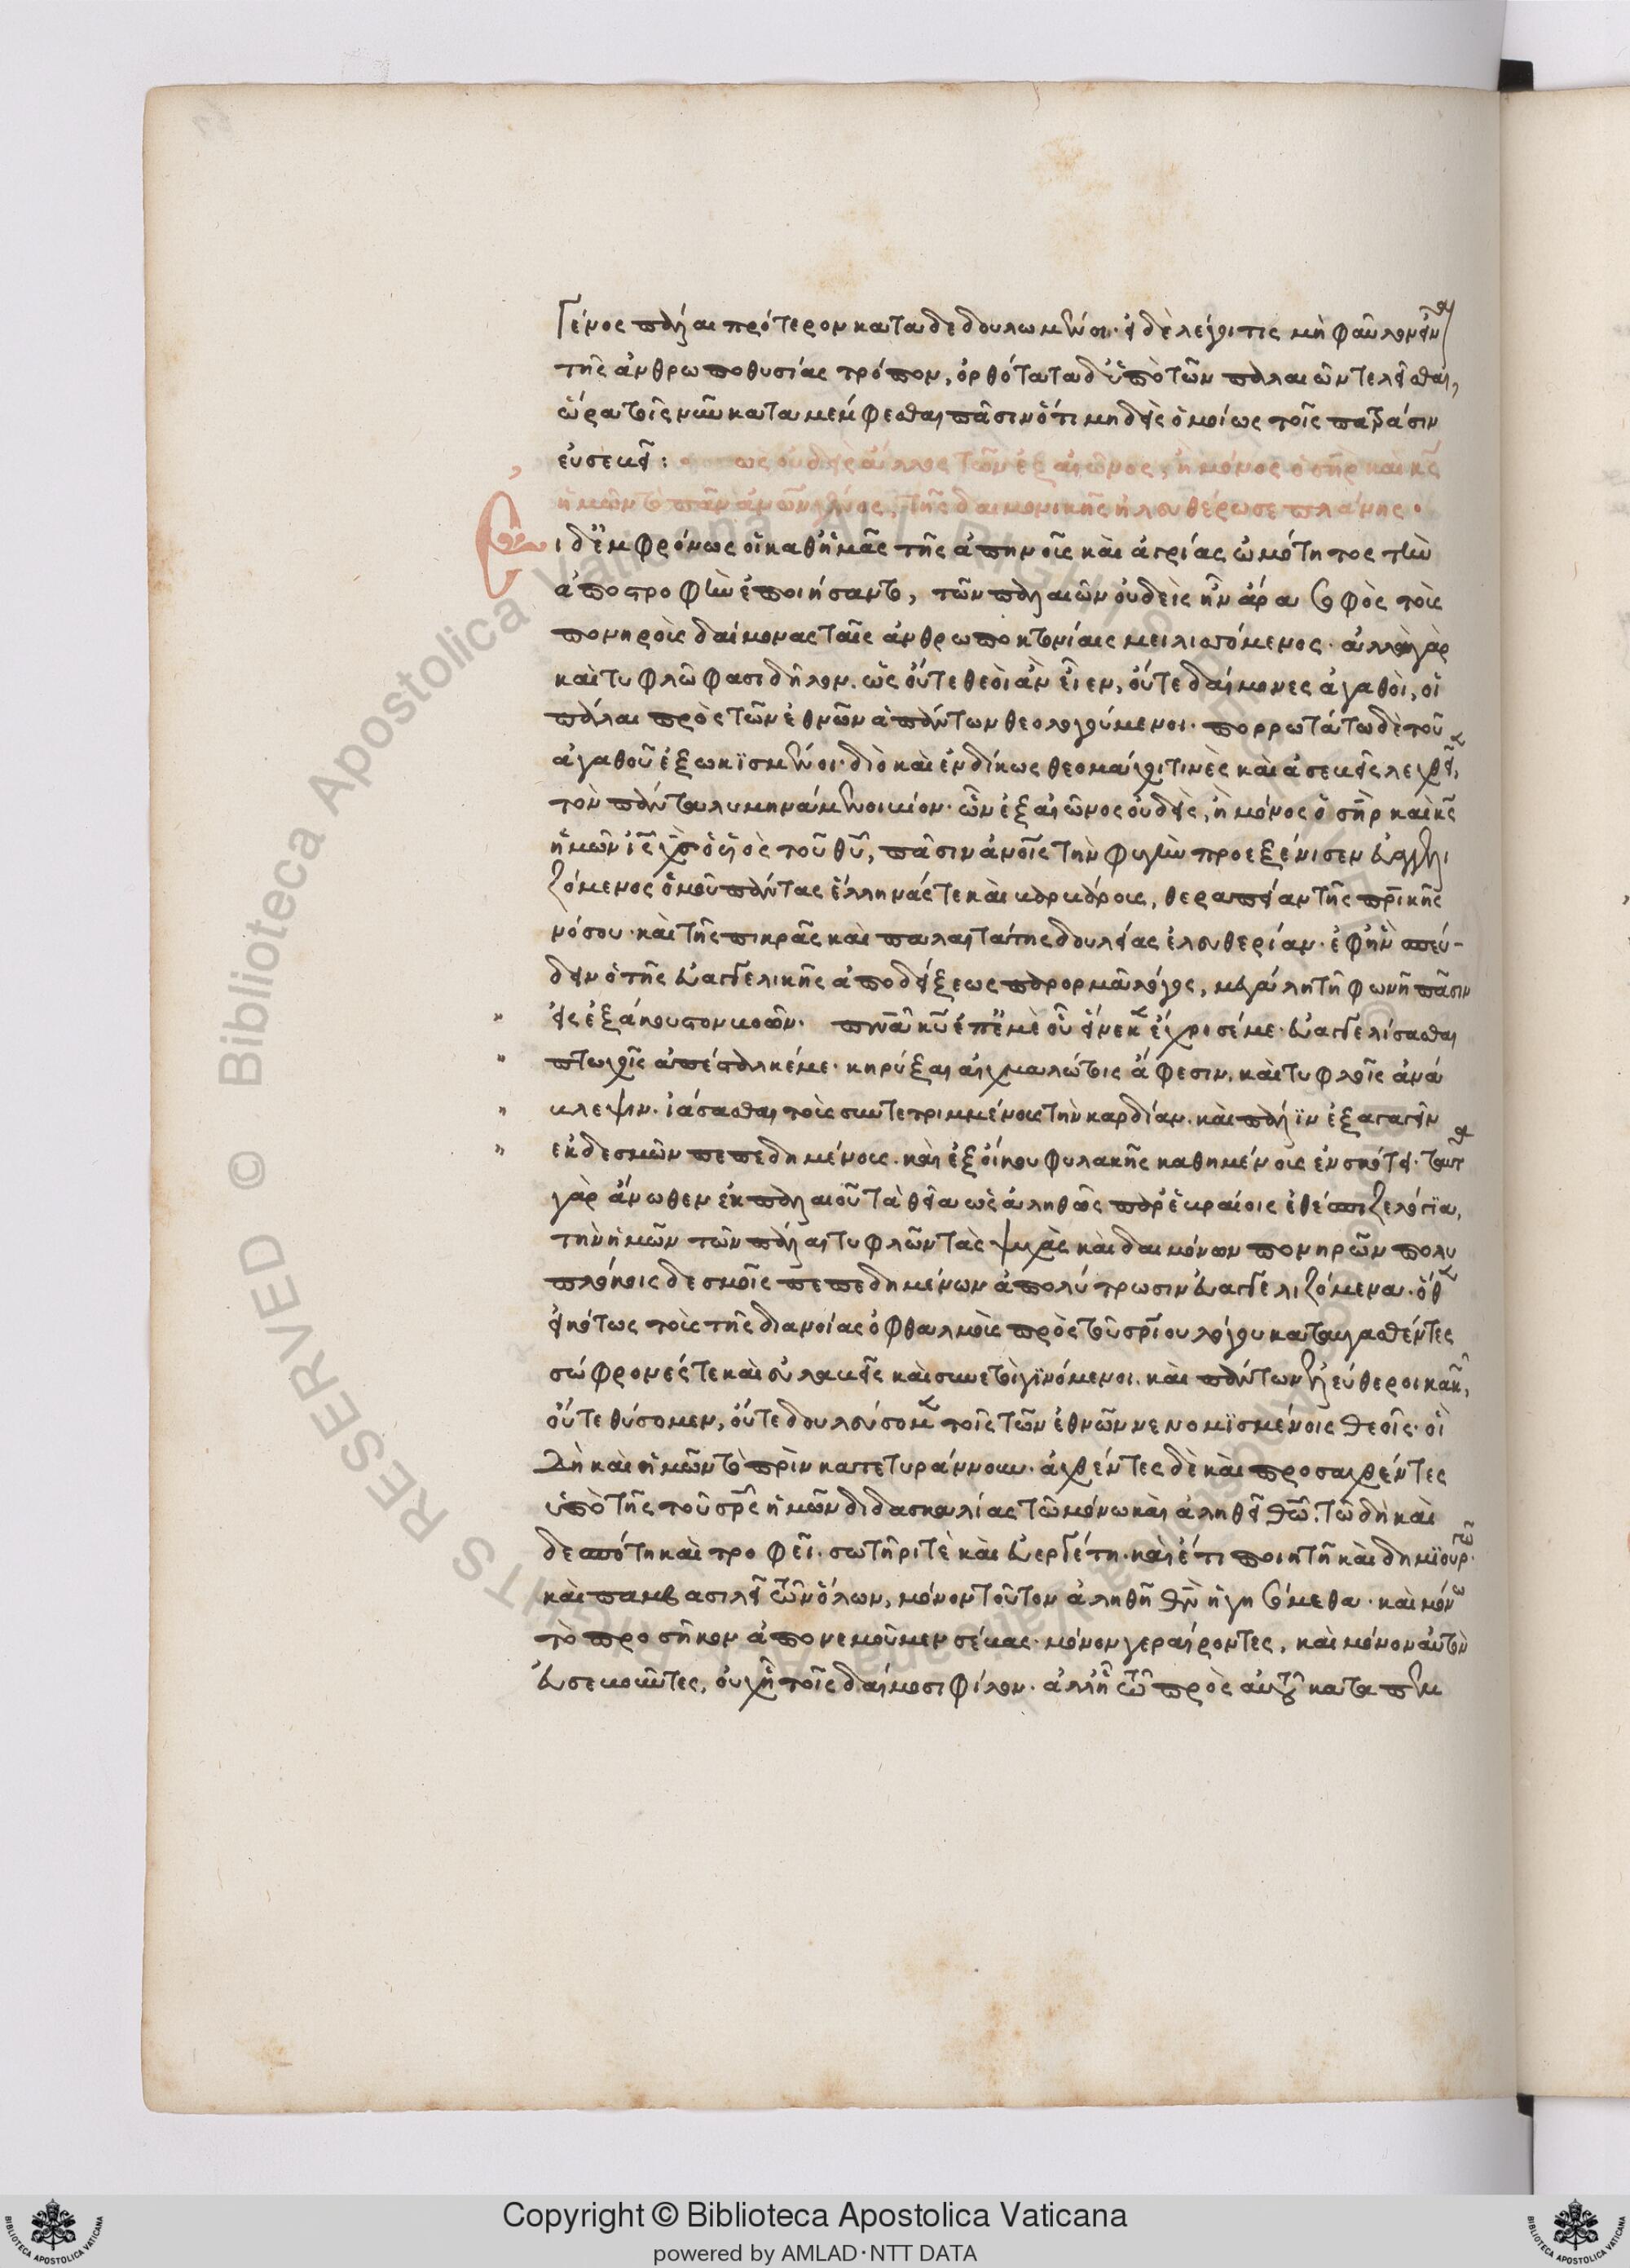 γένος πάλαι πρότερον καταδεδουλωμένοι· εἰ δὲ λέγοι τις μὴ φαῦλον εἶναι
τῆς ἀνθρωποθυσίας τρόπον, ὀρθότατα δ' ὑπὸ τῶν παλαιῶν τελεῖσθαι,
ὥρα τοῖς νῦν καταμέμφεσθαι πᾶσιν ὅτι μηδεὶς ὁμοίως τοῖς πατράσιν
εὐσεβεῖ: ὡς οὐδεὶς ἄλλος τῶν ἐξ αἰῶνος, ἢ μόνος ὁ σηρ καὶ κς
ἡμῶν τὸ πᾶν ἀνων γένος, τῆς δαιμονικῆς ἠλευθέρωσε πλάνης.
Εἰ δ' ἐμφρόνως οἱ καθ' ἡμᾶς τῆς ἀπηνοῦς καὶ ἀγρίας ὠμότητος τὴν
ἀποστροφὴν ἐποιήσαντο, τῶν παλαιῶν οὐδεὶς ἦν ἄρα σοφὸς τοὺς
πονηροὺς δαίμονας ταῖς ἀνθρωποκτονίαις μειλισσόμενος· ἀλλὰ γὰρ
καὶ τυφλῶ φασι δῆλον. ὡς οὔτε θεοὶ ἂν εἶεν, οὔτε δαίμονες ἀγαθοὶ, οἱ
πάλαι πρὸς τῶν ἐθνῶν ἁπάντων θεολογούμενοι. πορρωτάτω δὲ τοῦ
ἀγαθοῦ ἐξωκϊσμένοι· διὸ καὶ ἐνδίκως θεομάχοι τινὲς καὶ ἀσεβεῖς λεχθεῖεν,
τὸν πάντα λυμηνάμενοι βίον· ὧν ἐξ αἰῶνος οὐδεὶς, ἢ μόνος ὁ σηρ καὶ κς
ἡμῶν ις χς ὁ υἱὸς τοῦ θυ, πᾶσιν ἀνοις τὴν φυγὴν προεξένισεν εὐαγγελι
ζόμενος ὁμοῦ πάντας ἕλληνάς τε καὶ βαρβάρους, θεραπείαν τῆς πρικῆς
νόσου· καὶ τῆς πικρᾶς καὶ παλαιτάτης δουλείας ἐλευθερίαν· ἐφ' ἣν σπεύ-
δειν ὁ τῆς εὐαγγελικῆς ἀποδείξεως παρορμᾶ λόγος, μεγάλη τῆ φωνῆ πᾶσιν
εἰς ἐξάκουστον βοῶν. πνα κυ ἐπ' ἐμὲ οὗ εἵνεκεν ἔχρισέ με· εὐαγγελίσασθαι
πτωχοῖς ἀπέσταλκέ με· κηρύξαι αἰχμαλώτοις ἄφεσιν. καὶ τυφλοῖς ἀνά
βλεψιν. ἰάσασθαι τοὺς συντετριμμένους τὴν καρδίαν. καὶ πάλϊν ἐξαγαγεῖν
ἐκ δεσμῶν πεπεδημένους. καὶ ἐξ οἴκου φυλακῆς καθημένους ἐν σκότει. ταῦτα
γὰρ ἄνωθεν ἐκ παλαιοῦ τὰ θεῖα ὡς ἀληθῶς παρ' ἑβραίοις ἐθέσπιζε λόγϊα,
τὴν ἡμῶν τῶν πάλαι τυφλῶν τὰς ψυχὰς καὶ δαιμόνων πονηρῶν πολυ
πλόκοις δεσμοῖς πεπεδημένων ἀπολύτρωσιν εὐαγγελιζόμενα. ὅθεν
εἰκότως τοὺς τῆς διανοίας ὀφθαλμοὺς πρὸς τοῦ σρίου λόγου καταυγασθέντες
σώφρονές τε καὶ εὐλαβεῖς καὶ συνετοὶ γϊνόμενοι. καὶ πάντων ἐλεύθεροι κακῶν,
οὔτε θύσομεν, οὔτε δουλεύσομεν τοῖς τῶν ἐθνῶν νενομϊσμένοις θεοῖς· οἳ
δὴ καὶ ἡμῶν τὸ πρὶν κατετυράννουν. ἀχθέντες δὲ καὶ προσαχθέντες
ὑπὸ τῆς τοῦ σρς ἡμῶν διδασκαλίας τῶ μόνω καὶ ἀληθεῖ θω. τῶ δὴ καὶ
δεσπότη καὶ τροφεῖ. σωτῆρί τε καὶ εὐεργέτη. καὶ ἔτι ποιητῆ καὶ δημϊουργῶ.
καὶ παμβασιλεῖ τῶν ὅλων, μόνον τοῦτον ἀληθῆ θν ἡγησόμεθα. καὶ μόνω
τὸ προσῆκον ἀπονεμοῦμεν σέβας. μόνον γεραίροντες, καὶ μόνον αὐτὸν
εὐσεβοῦντες, οὐχ ἧ τοῖς δαίμοσι φίλον. ἀλλ' ἧ τῶ πρὸς αὐτοῦ καταπεμ